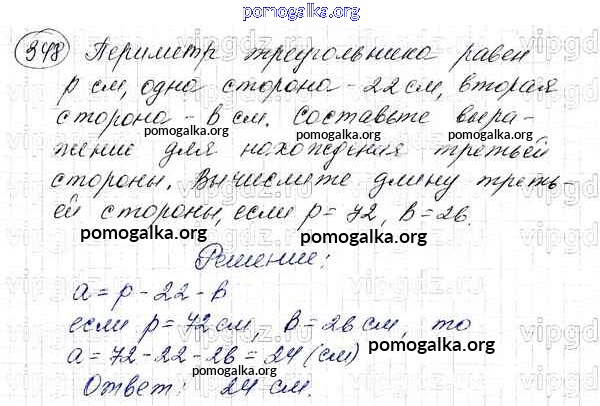 pomogalka.org
348 Периметр треугольника равен
p см, одна сторона - 22 см, вторая
сторона - b см. Составьте выра-
pomogalka.org pomogalka.org
жение для нахождения третьей
стороны. Вычислите длину треть-
ей стороны, если p = 72, b = 26.
pomogalka.org pomogalka.org
Решение:
a = p - 22 - b
pomogalka.org
если p = 72 см, b = 26 см, то
a = 72 - 22 - 26 = 24 (см)
pomogalka.org
Ответ: 24 см.
pomogalka.org